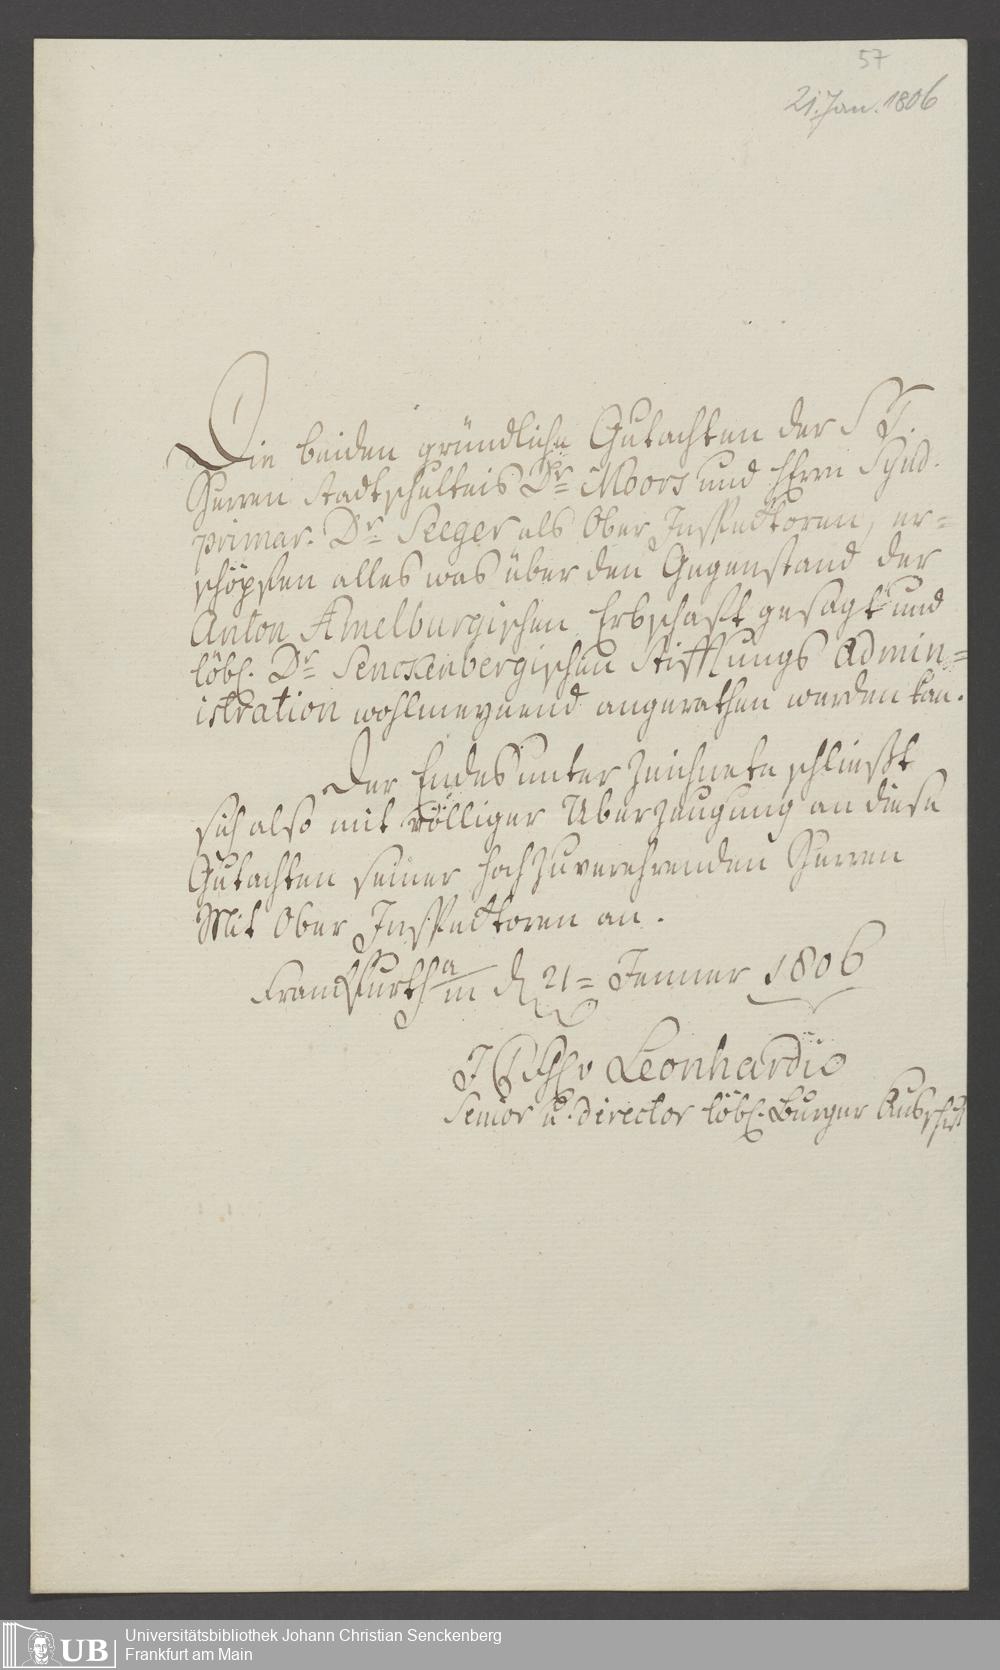 57
21. Jan. 1806
Die beiden gründliche Gutachten der S. T.
Herren Stadtschultheis Dr. Moors und Herrn Synd.
primar. Dr. Seeger als Ober Inspecktoren, er=
schöpfen alles was über den Gegenstand der
Anton Amelburgischen Erbschaft gesagt und
löbl. Dr. Senckenbergischen Stifftungs Admin=
istration wohlmeynend angerathen werden kan.
Der Endes unterzeichnete schließt
sich also mit völliger Uberzeugung an diese
Gutachten seiner hochzuverehrenden Herren
Mit Ober Inspecktoren an.
Franckfurth a/m d 21= Jenner 1806
Leonhardi
Senior u. Director löbl. Burger Ausschuß
UB Universitätsbibliothek Johann Christian Senckenberg
Frankfurt am Main